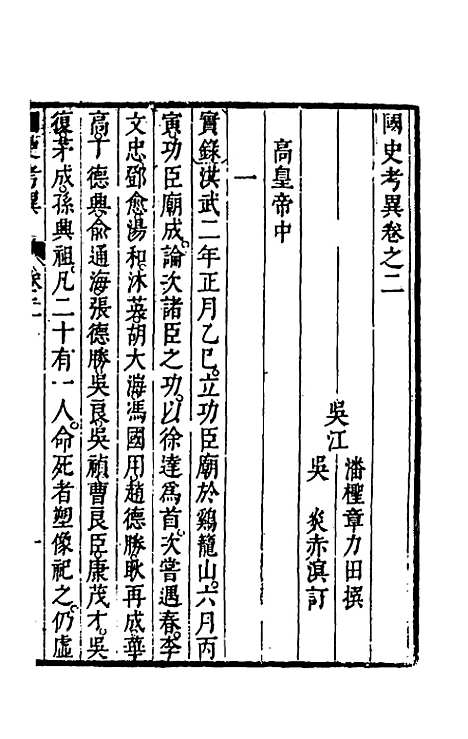 國史考異卷之二
吳江
潘檉章力田撰
吳 炎赤溟訂
高皇帝中
一
實錄洪武二年正月乙巳立功臣廟於鷄籠山六月丙
寅功臣廟成論次諸臣之功以徐達爲首次常遇春李
文忠鄧愈湯和沐英胡大海馮國用趙德勝耿再成華
高丁德興俞通海張德勝吳良吳禎曹良臣康茂才吳
復茅成孫興祖凡二十有一人命死者塑像祀之仍虛
國史考異 卷二 一